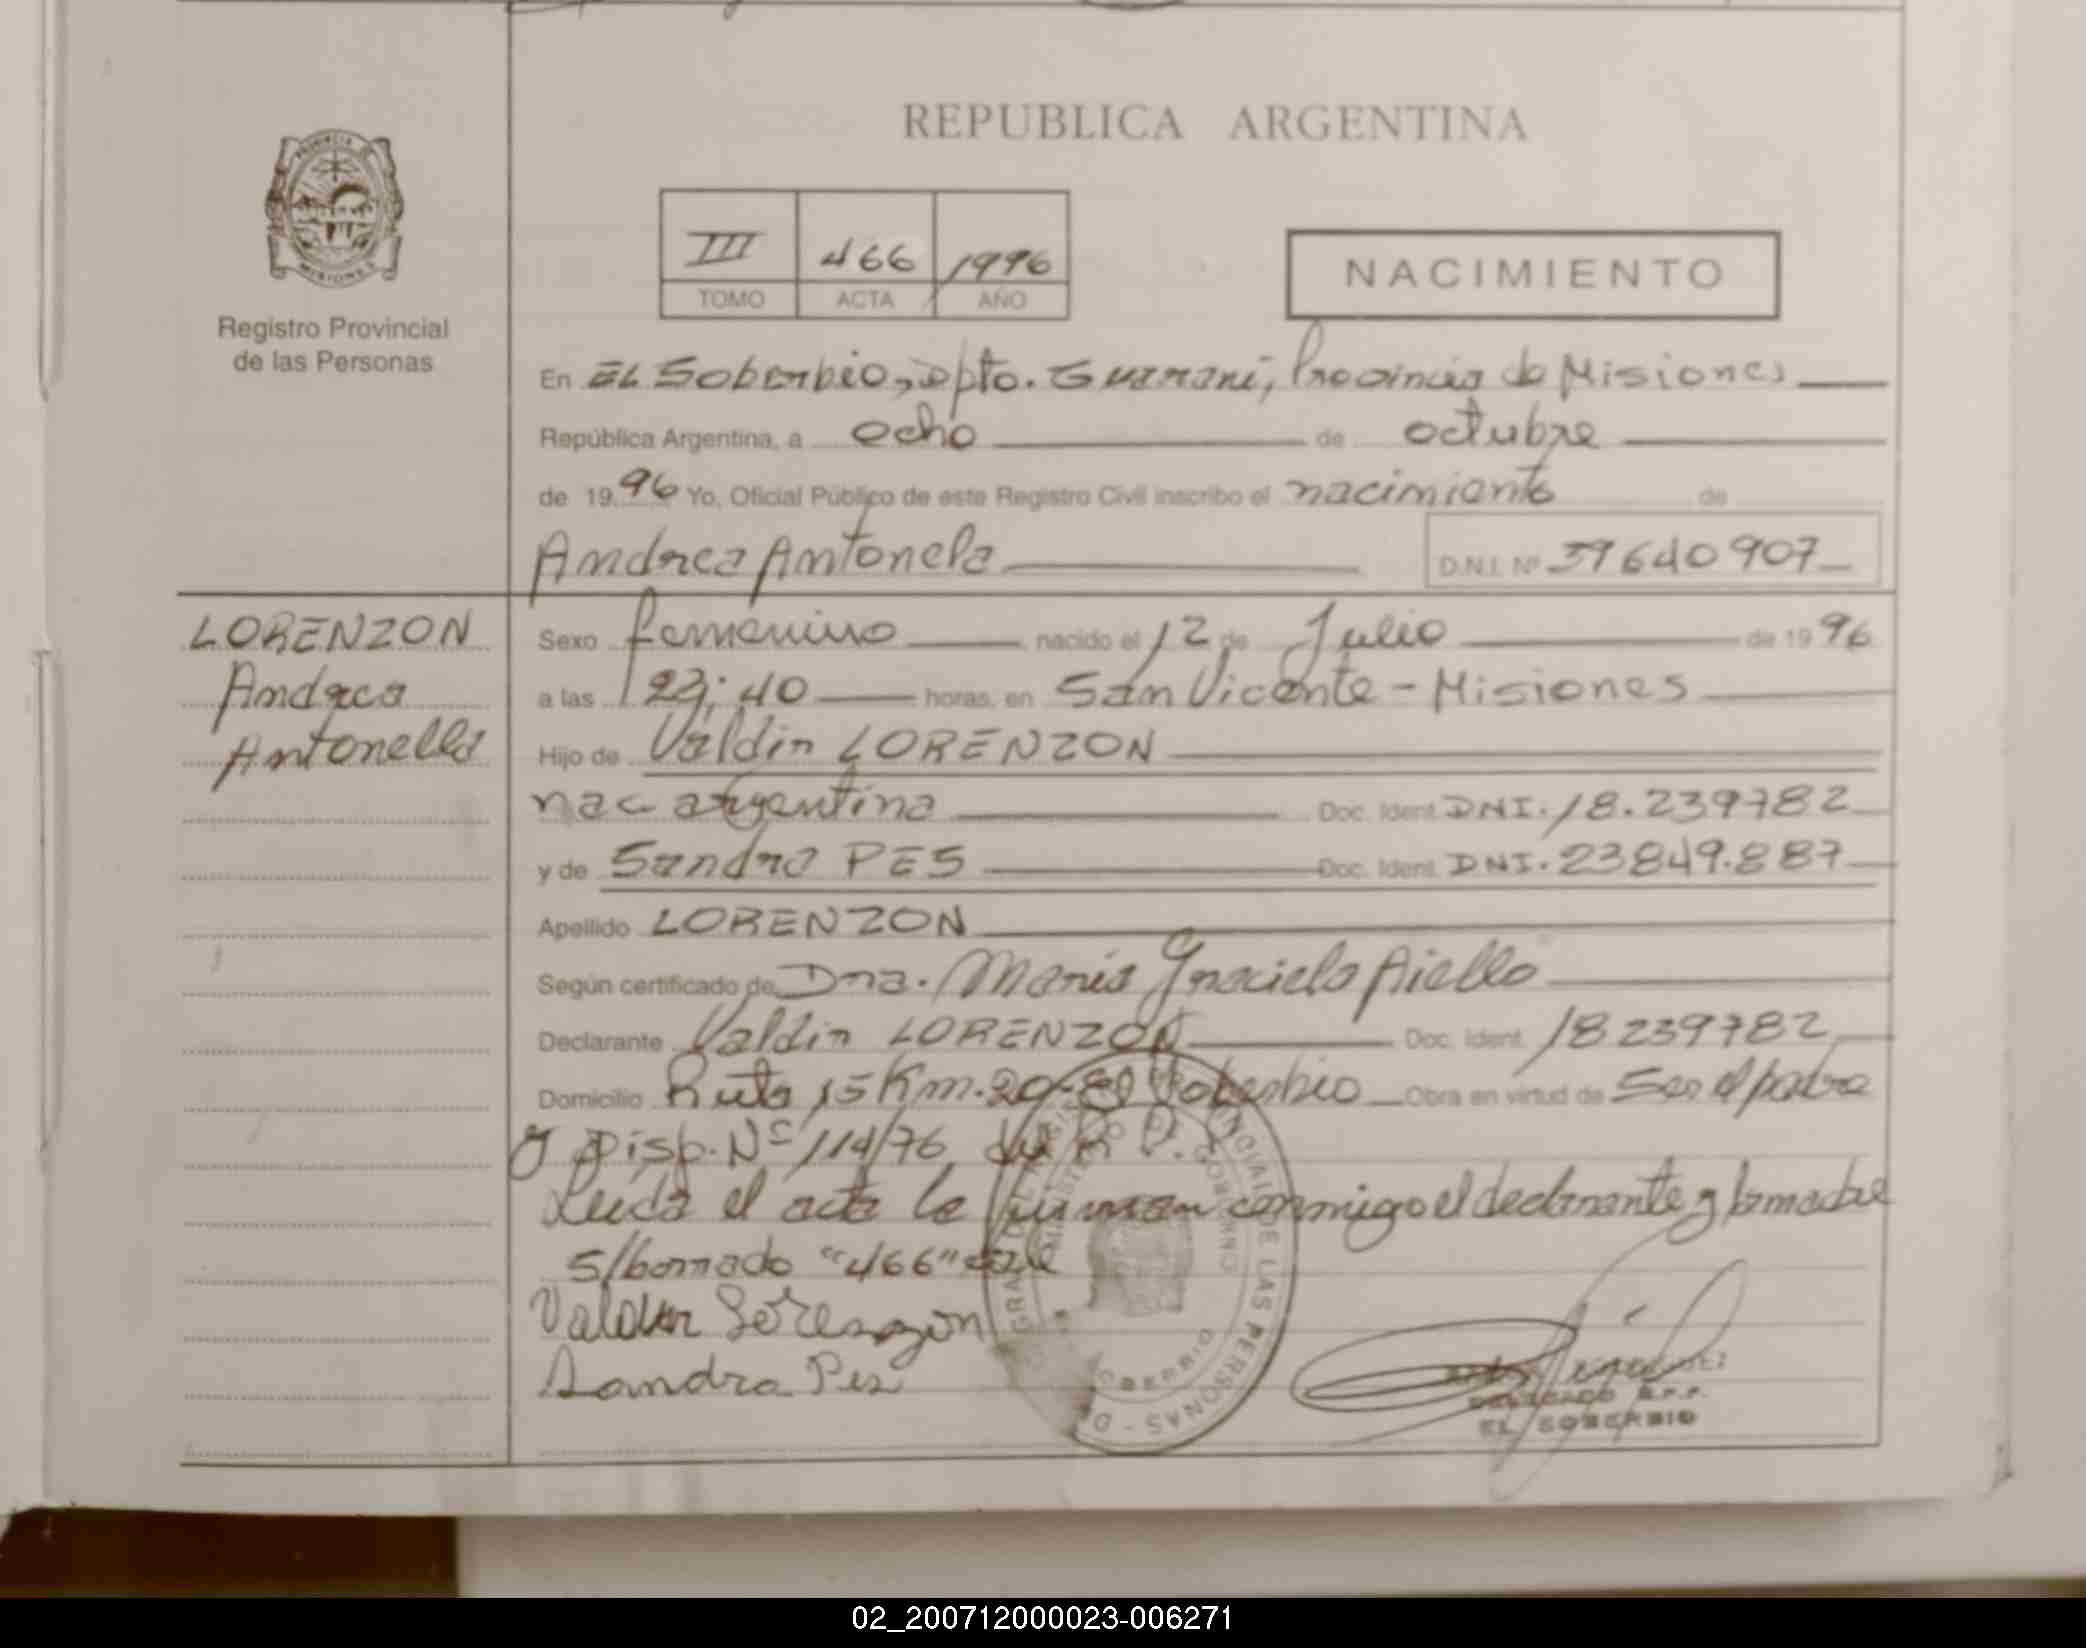 REPUBLICA ARGENTINA
PROVINCIA DE
MISIONES
Registro Provincial
de las Personas
III 466 1996
TOMO ACTA AÑO
NACIMIENTO
En EL Soberbio, Dpto. Guarani, Provincia de Misiones
República Argentina, a ocho de octubre
de 1996 Yo, Oficial Público de este Registro Civil inscribo el nacimiento de
Andrea Antonela D.N.I. Nº 39640907
LORENZON
Andrea
Antonella
Sexo femenino nacido el 12 de Julio de 1996
a las 23:40 horas, en San Vicente - Misiones
Hijo de Valdir LORENZON
nac argentina Doc. Ident. DNI. 18.239782
y de Sandra PES Doc. Ident. DNI. 23849.887
Apellido LORENZON
Según certificado de Dra. Maria Graciela Aiello
Declarante Valdir LORENZON Doc. Ident. 18239782
Domicilio Ruta 15 Km. 20 - El Soberbio Obra en virtud de Ser el padre
y Disp. Nº 114/76 del R.P.
Leida el acta la firman conmigo el declarante y la madre
s/borrado "466" vale
Valdir Lorenzon
Sandra Pes
DE LAS PERSONAS
SOBERBIO
R.P.P.
EL SOBERBIO
02_200712000023-006271